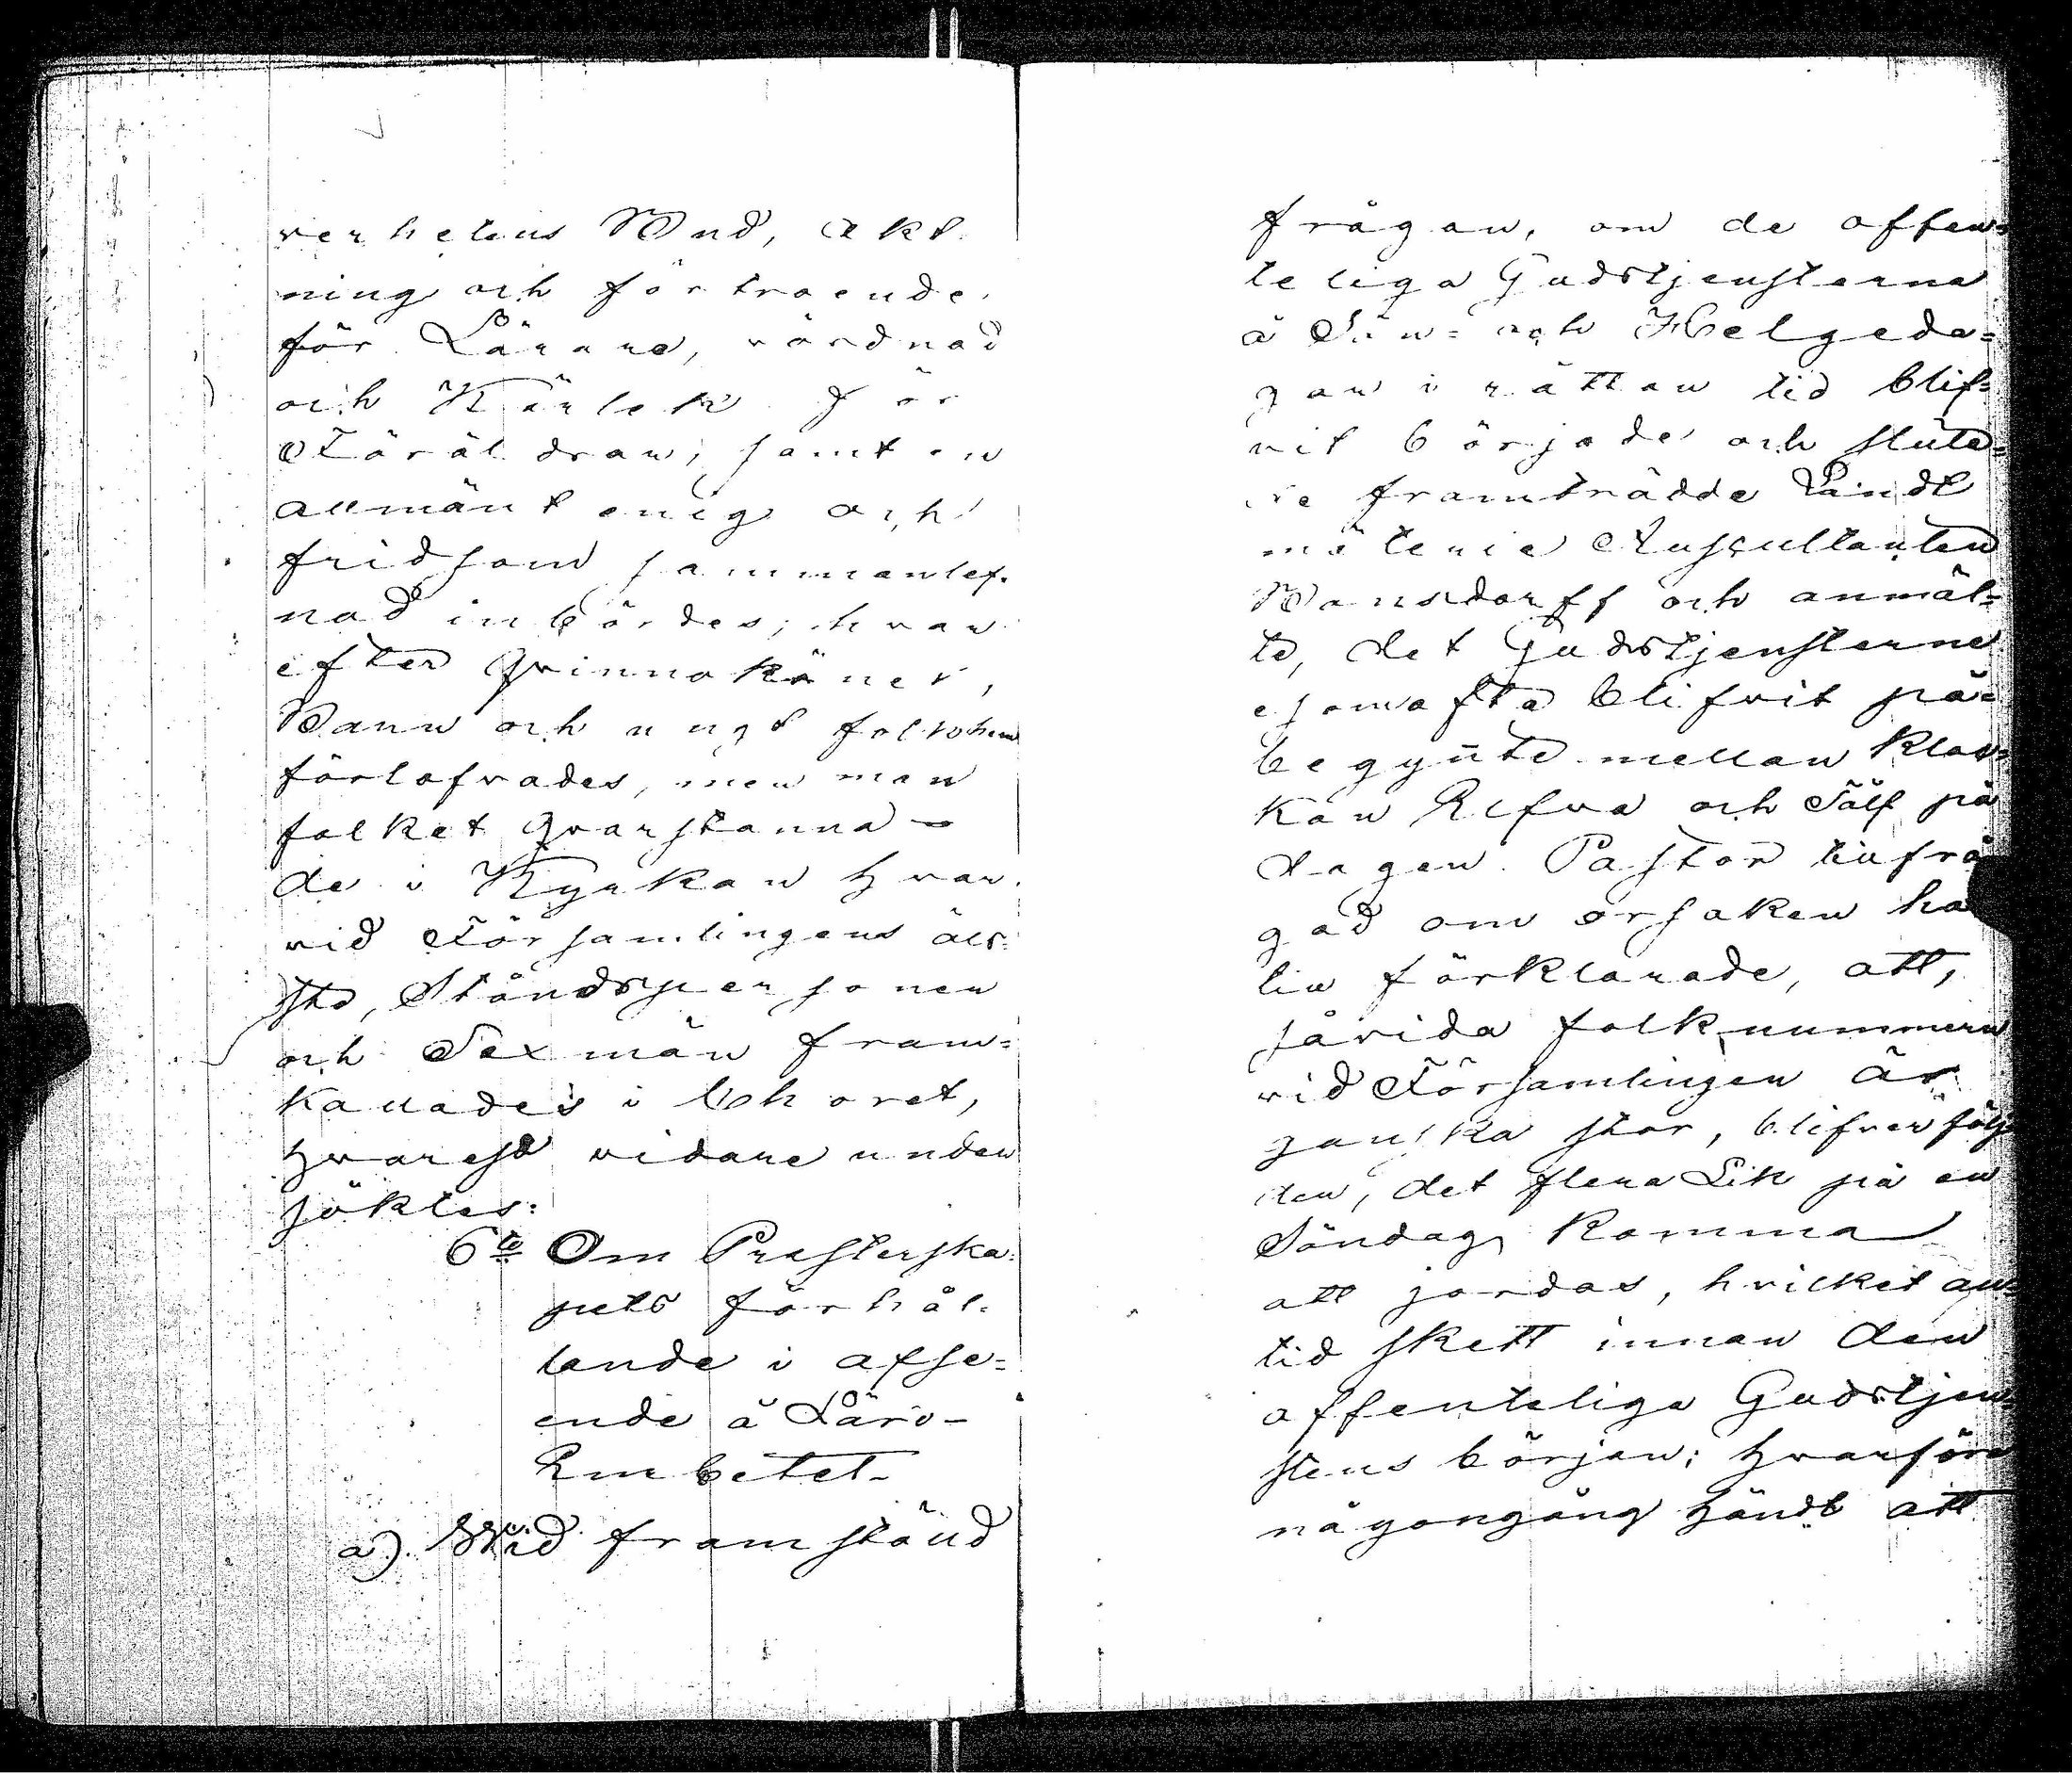 verhetens Bud, akt
ning och förtroende
för Lärare, vördnad
och Kärlek för
Föräldrar, samt en
allmänt enig och
fridsam sammanlef-
nad inbördes; hvar
efter Qvinnokönet,
Barn och ungt folk
förlofvades, men man
folket qvarstanna-
de i Kyrkan hvar
vid Församlingens äld-
sta, Ståndspersoner
och Sexmän fram=
kallades i Choret,
hvarest vidare under
söktes:
6to Om Presterska-
pets förhål-
lande i afse=
ende å Läro-
Embetet.
a). Wid framstäld
frågan, om de offen=
teliga Gudstjensterna
å Sön= och Helgeda=
gar i rättan tid blif=
vit började och sluta=
de framträdde Landt
mäterie Auscultanten
och anmäl=
te, det Gudstjensterne
esomofta blifvit på=
begynte mellan Kloc=
kan Elfva och Tolf på
dagen. Pastor tillfrå
gad om orsaken här
till förklarade, att,
såvida folknummern
vid Församlingen är
ganska stor, blifver följ
den, det flera Lik på en
Söndag Komma
att jordas, hvilket all=
tid skett innan den
offenteliga Gudstjen
stens början; hvarföre
någongång händt att